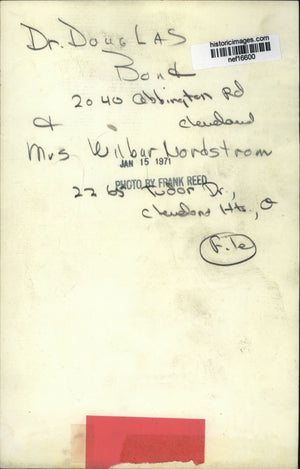 Dr. DOUGLAS
Bond
2040 Abbington Rd
Cleveland
&
Mrs Wilbur Nordstrom
JAN 15 1971
PHOTO BY FRANK REED
2265 Tudor Dr,
Cleveland Hts., O
File
historicimages.com
nef16600